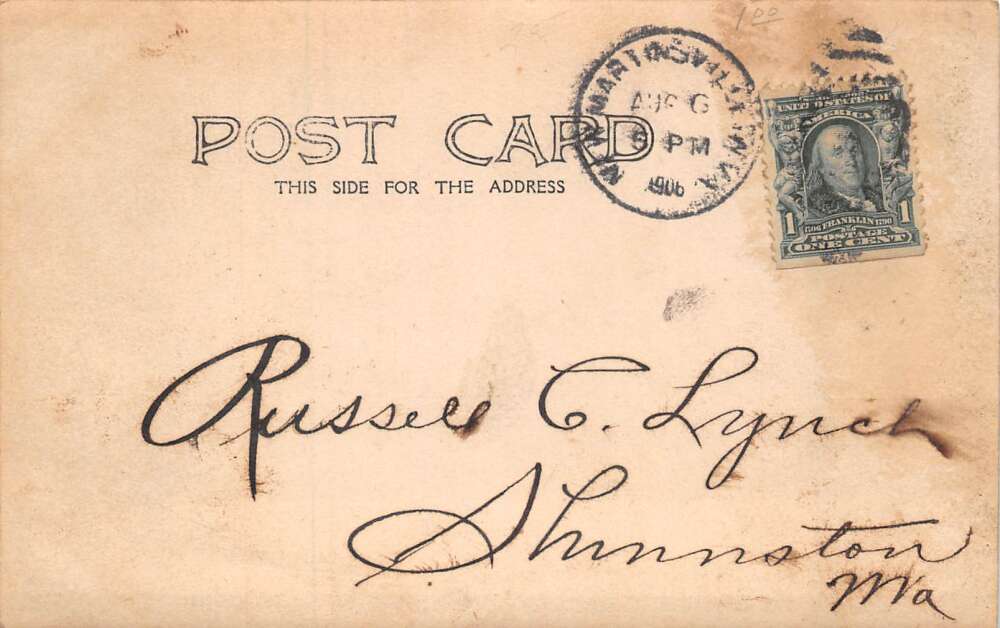 1 00
POST CARD
THIS SIDE FOR THE ADDRESS
NEW MARTINSVILLE W.VA.
AUG 6
6 PM
1906
UNITED STATES OF
AMERICA
1 1706 FRANKLIN 1790 1
AND
POSTAGE
ONE CENT
Russell C. Lynch
Shinnston
Wa